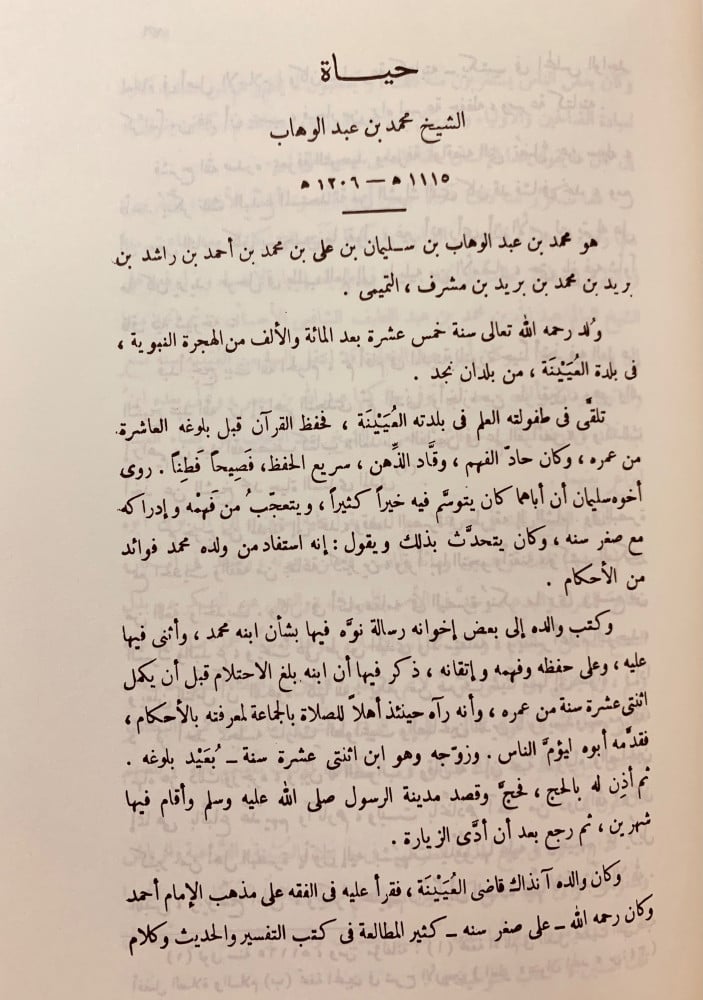 حيـــاة
الشيخ محمد بن عبد الوهاب
١١١٥ ه — ١٢٠٦ ه
هو محمد بن عبد الوهاب بن سـليمان بن على بن محمد بن أحمد بن راشد بن
بريد بن محمد بن بريد بن مشرف ، التميمى .
وُلد رحمه الله تعالى سنة خمس عشرة بعد المائة والألف من الهجرة النبوية ،
فى بلدة العُيَيْنَة ، من بلدان نجد .
تلقَّى فى طفولته العلم فى بلدته العُيَيْنَة ، فحفظ القرآن قبل بلوغه العاشرة
من عمره ، وكان حادّ الفهم ، وقَّاد الذِّهن ، سريع الحفظ، فَصِيحاً فَطِناً . روى
أخوه سليمان أن أباهما كان يتوسَّم فيه خيراً كثيراً ، ويتعجّبُ من فَهْمِه وإدراكه
مع صغر سنه ، وكان يتحدَّث بذلك ويقول : إنه استفاد من ولده محمد فوائد
من الأحكام .
وكتب والده إلى بعض إخوانه رسالة نوَّه فيها بشأن ابنه محمد ، وأثنى فيها
عليه ، وعلى حفظه وفهمه وإتقانه ، ذكر فيها أن ابنه بلغ الاحتلام قبل أن يكمل
اثنتى عشرة سنة من عمره ، وأنه رآه حينئذ أهلاً للصلاة بالجماعة لمعرفته بالأحكام ،
فقدَّمه أبوه ليؤمَّ الناس . وزوّجه وهو ابن اثنتى عشرة سنة ـ بُعَيْد بلوغه .
ثم أذِن له بالحج ، فحجَّ وقصد مدينة الرسول صلى الله عليه وسلم وأقام فيها
شهرين ، ثم رجع بعد أن أدَّى الزيارة .
وكان والده آنذاك قاضى العُيَيْنَة ، فقرأ عليه فى الفقه على مذهب الإمام أحمد
وكان رحمه الله ـ على صغر سنه ـ كثير المطالعة فى كتب التفسير والحديث وكلام